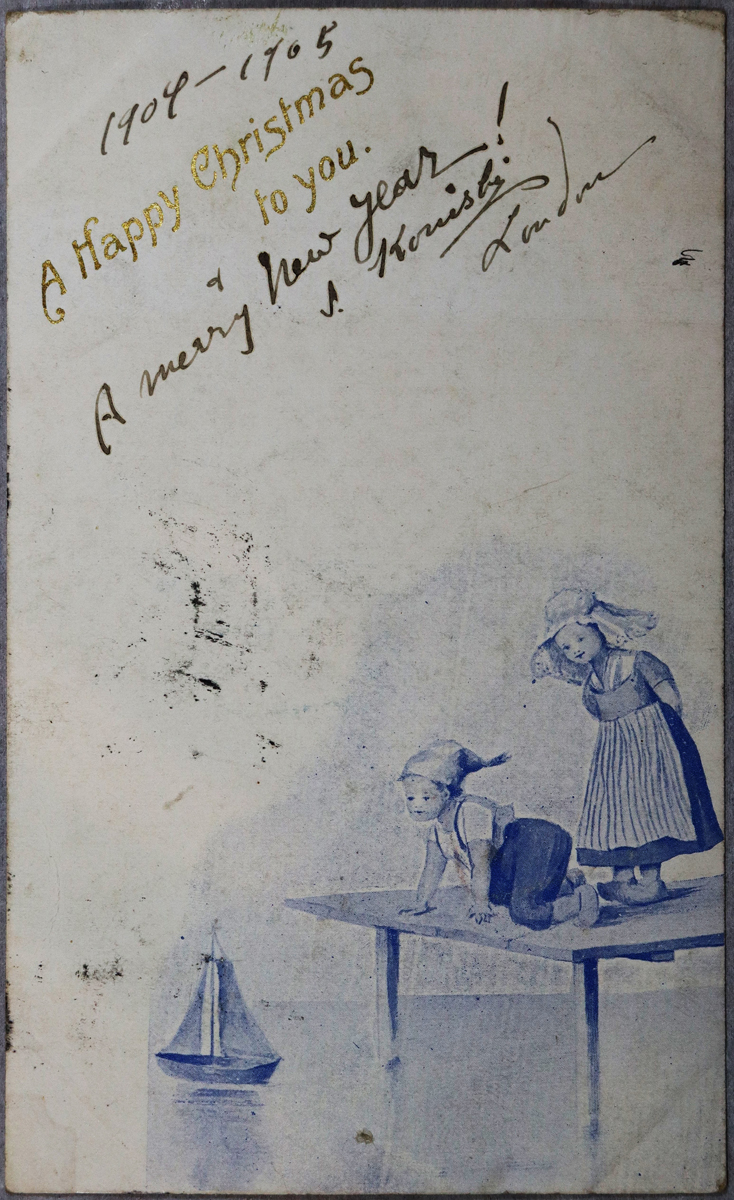 1904-1905
A Happy Christmas
to you.
&
A merry New Year!
S. Konisby
London